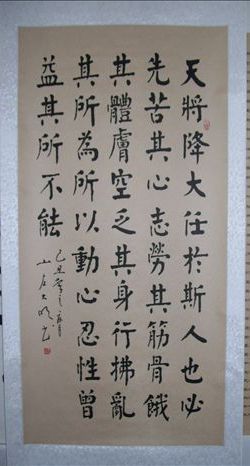 天將降大任於斯人也必
先苦其心志勞其筋骨餓
其體膚空乏其身行拂亂
其所為所以動心忍性曾
益其所不能
己丑
山石